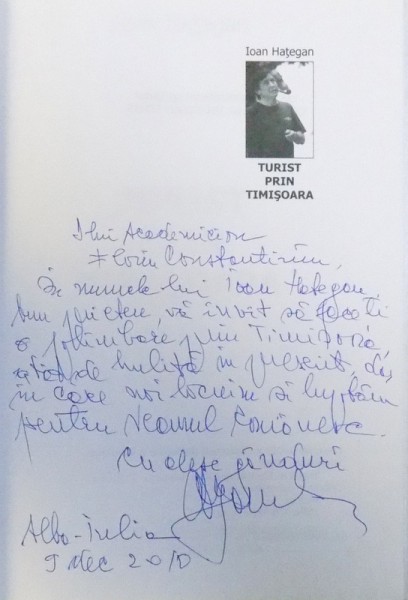 Ioan Haţegan
TURIST
PRIN
TIMIŞOARA
Dlui Academician
Florin Constantiniu,
În numele lui Ioan Haţegan,
bun prieten, vă invit să faceţi
o plimbare prin Timişoara,
atât de hulită în prezent, dar
în care noi locuim şi luptăm
pentru Neamul Românesc.
Cu alese gânduri
Alba-Iulia
9 dec 2010